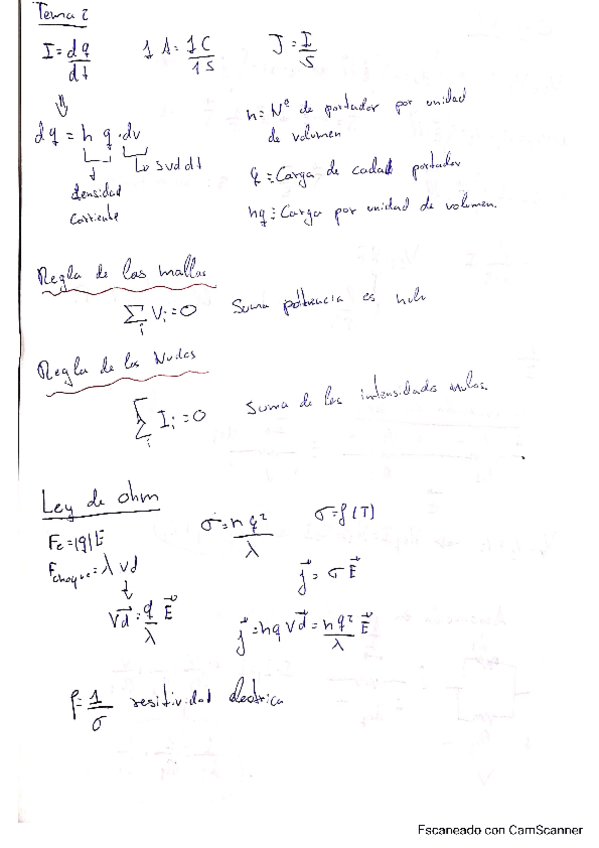 Tema 2
I = dq/dt   1 A = 1C/1s   J = I/S
⇓
dq = n q · dv
↳ S vd dt
densidad
corriente
n = Nº de portador por unidad
de volumen
q = Carga de cada portador
nq = Carga por unidad de volumen.
Regla de las mallas
∑i Vi = 0   Suma potencia es nula
Regla de los Nudos
∑i Ii = 0   Suma de las intensidades nulas.
Ley de ohm
Fe = |q|E   σ = nq²/λ   σ = f(T)
Fchoque = λ vd   j⃗ = σ E⃗
↓
v⃗d = q/λ E⃗   j⃗ = nq v⃗d = nq²/λ E⃗
ρ = 1/σ resitividad electrica
Escaneado con CamScanner